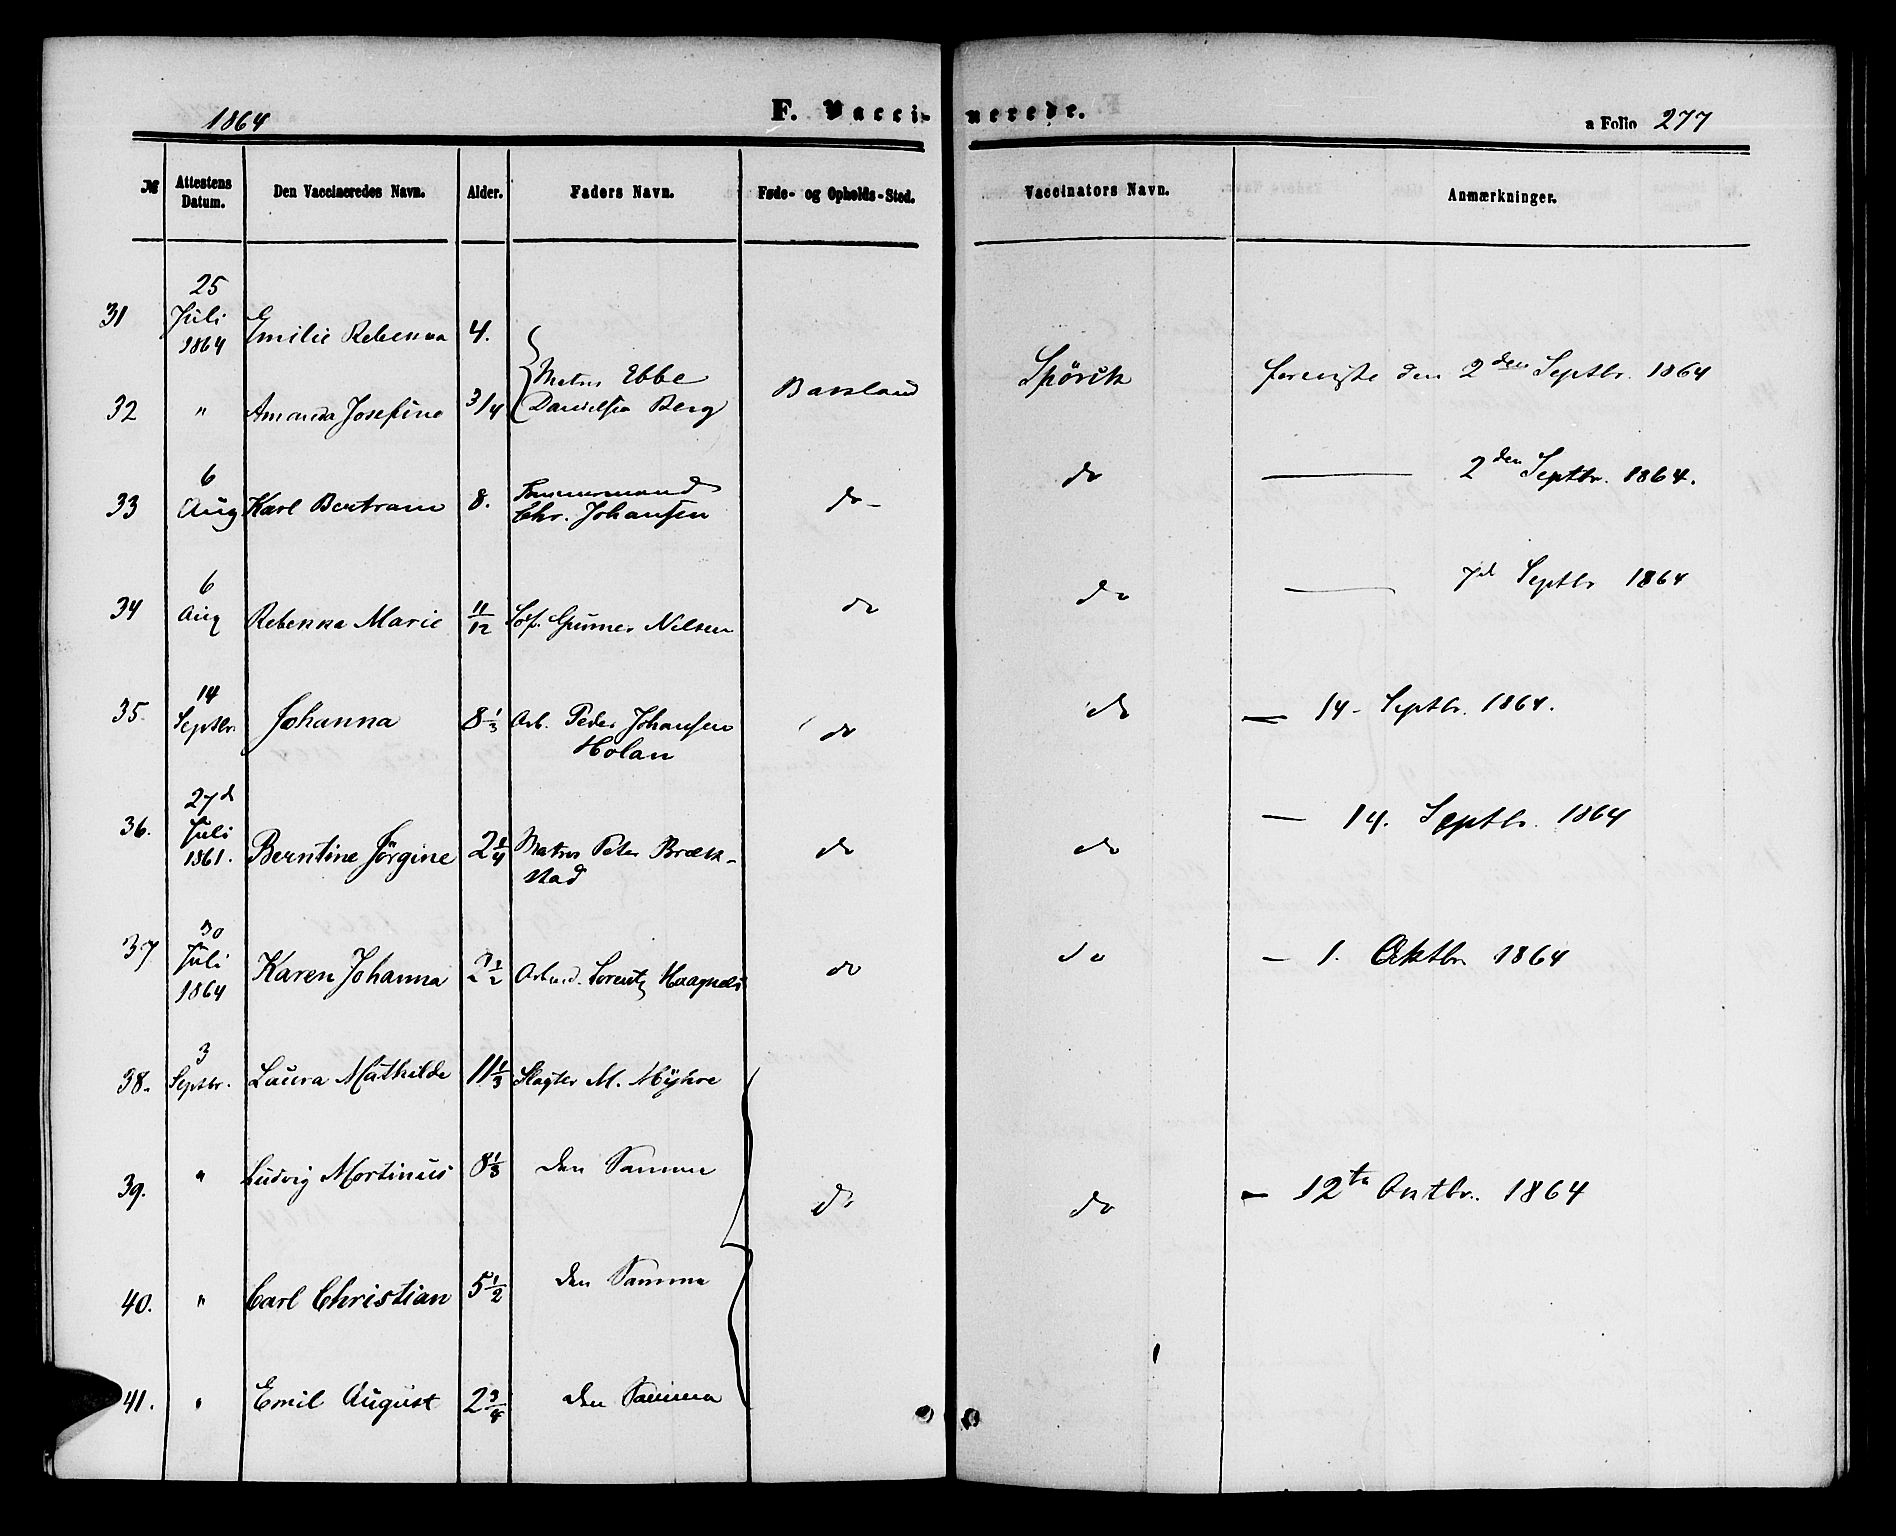 1864
F. Vaccinerede.
a Folio 277
№ Attestens Datum. Den Vaccineredes Navn. Alder. Faders Navn. Føde- og Opholds-Sted. Vaccinators Navn. Anmærkninger.
31 25 Juli 1864 Emilie Rebekka 4.
Matros Ebbe Danielsen Berg Baksland Spörck foreviste den 2den Septbr. 1864
32 " Amanda Josefine 3/4
33 6 Aug Karl Bertram 8. Tømmermand Chr. Johansen do do — 2den Septbr. 1864.
34 6 Aug Rebekka Marie 11/12 Søf. Gunner Nilsen do do — 7d Septbr 1864
35. 14 Septbr. Johanna 8 1/3 Arb. Peder Johansen Holan do do — 14. Septbr. 1864.
36. 27d Juli 1861. Berntine Jörgine 2 1/4 Matros Peter Brækstad do do — 14. Septbr. 1864
37 30 Juli 1864 Karen Johanna 2 1/2 Arbmd. Lorentz do do — 1. Oktbr 1864
38. 3 Septbr. Laura Mathilde 11 1/3 Slagter M. Myhre
39. " Ludvig Mortinus 8 1/3 den Samme do do — 12te Oktbr. 1864
40. " Carl Christian 5 1/2 den Samme
41. " Emil August 2 3/4 den Samme